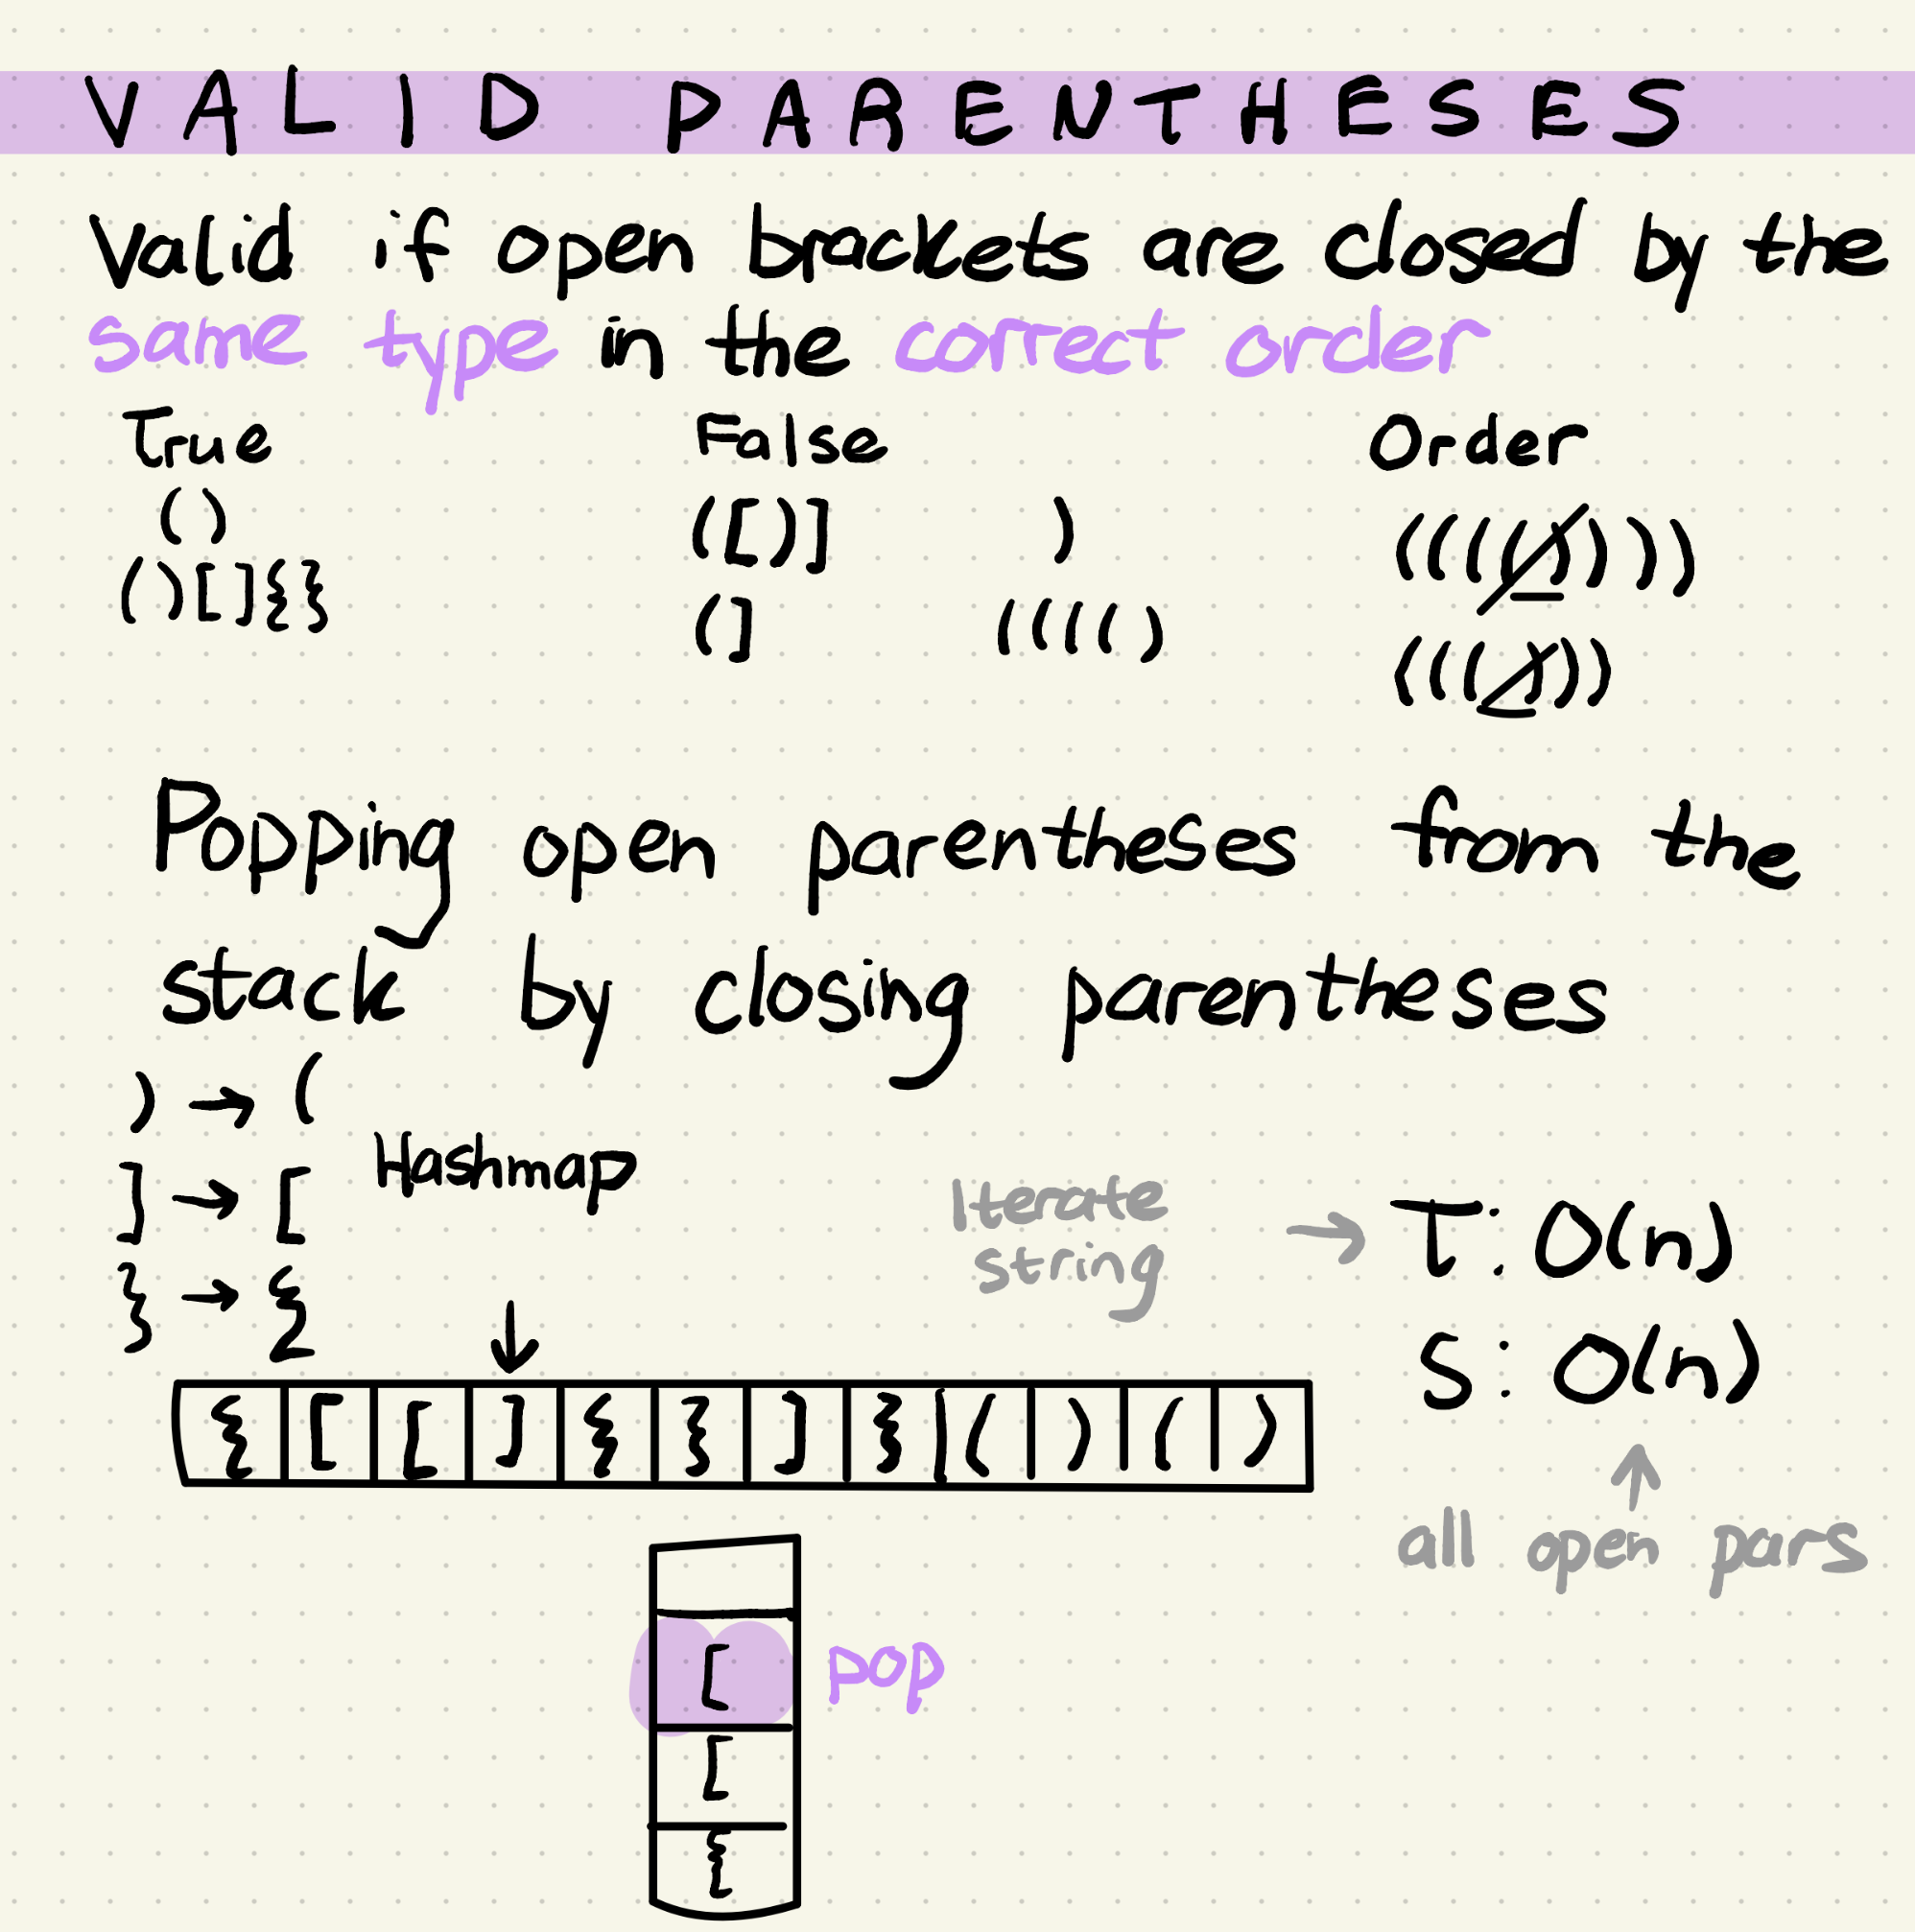 VALID PARENTHESES
Valid if open brackets are closed by the
same type in the correct order
True False Order
() ([)] ) (((())))
()[]{} (] (((() ((()))
Popping open parentheses from the
stack by closing parentheses
) → (
] → [ Hashmap
} → {
Iterate
string → T: O(n)
S: O(n)
↓
{ [ [ ] { } ] } ( ) ( )
↑
all open pars
[ pop
[
{